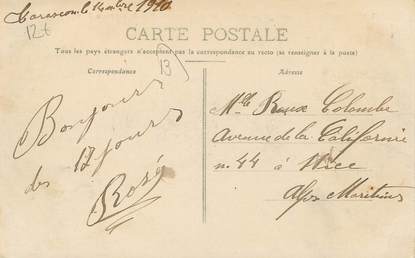 Tarascon le 14 mbre 1910
12 t
CARTE POSTALE
Tous les pays étrangers n'acceptent pas la correspondance au recto (se renseigner à la poste)
Correspondance
13
Adresse
Bonjours
des 17 jours
Rosé
Mlle Roux Colombe
Avenue de la Californie
n. 44 à Nice
Alpes Maritimes